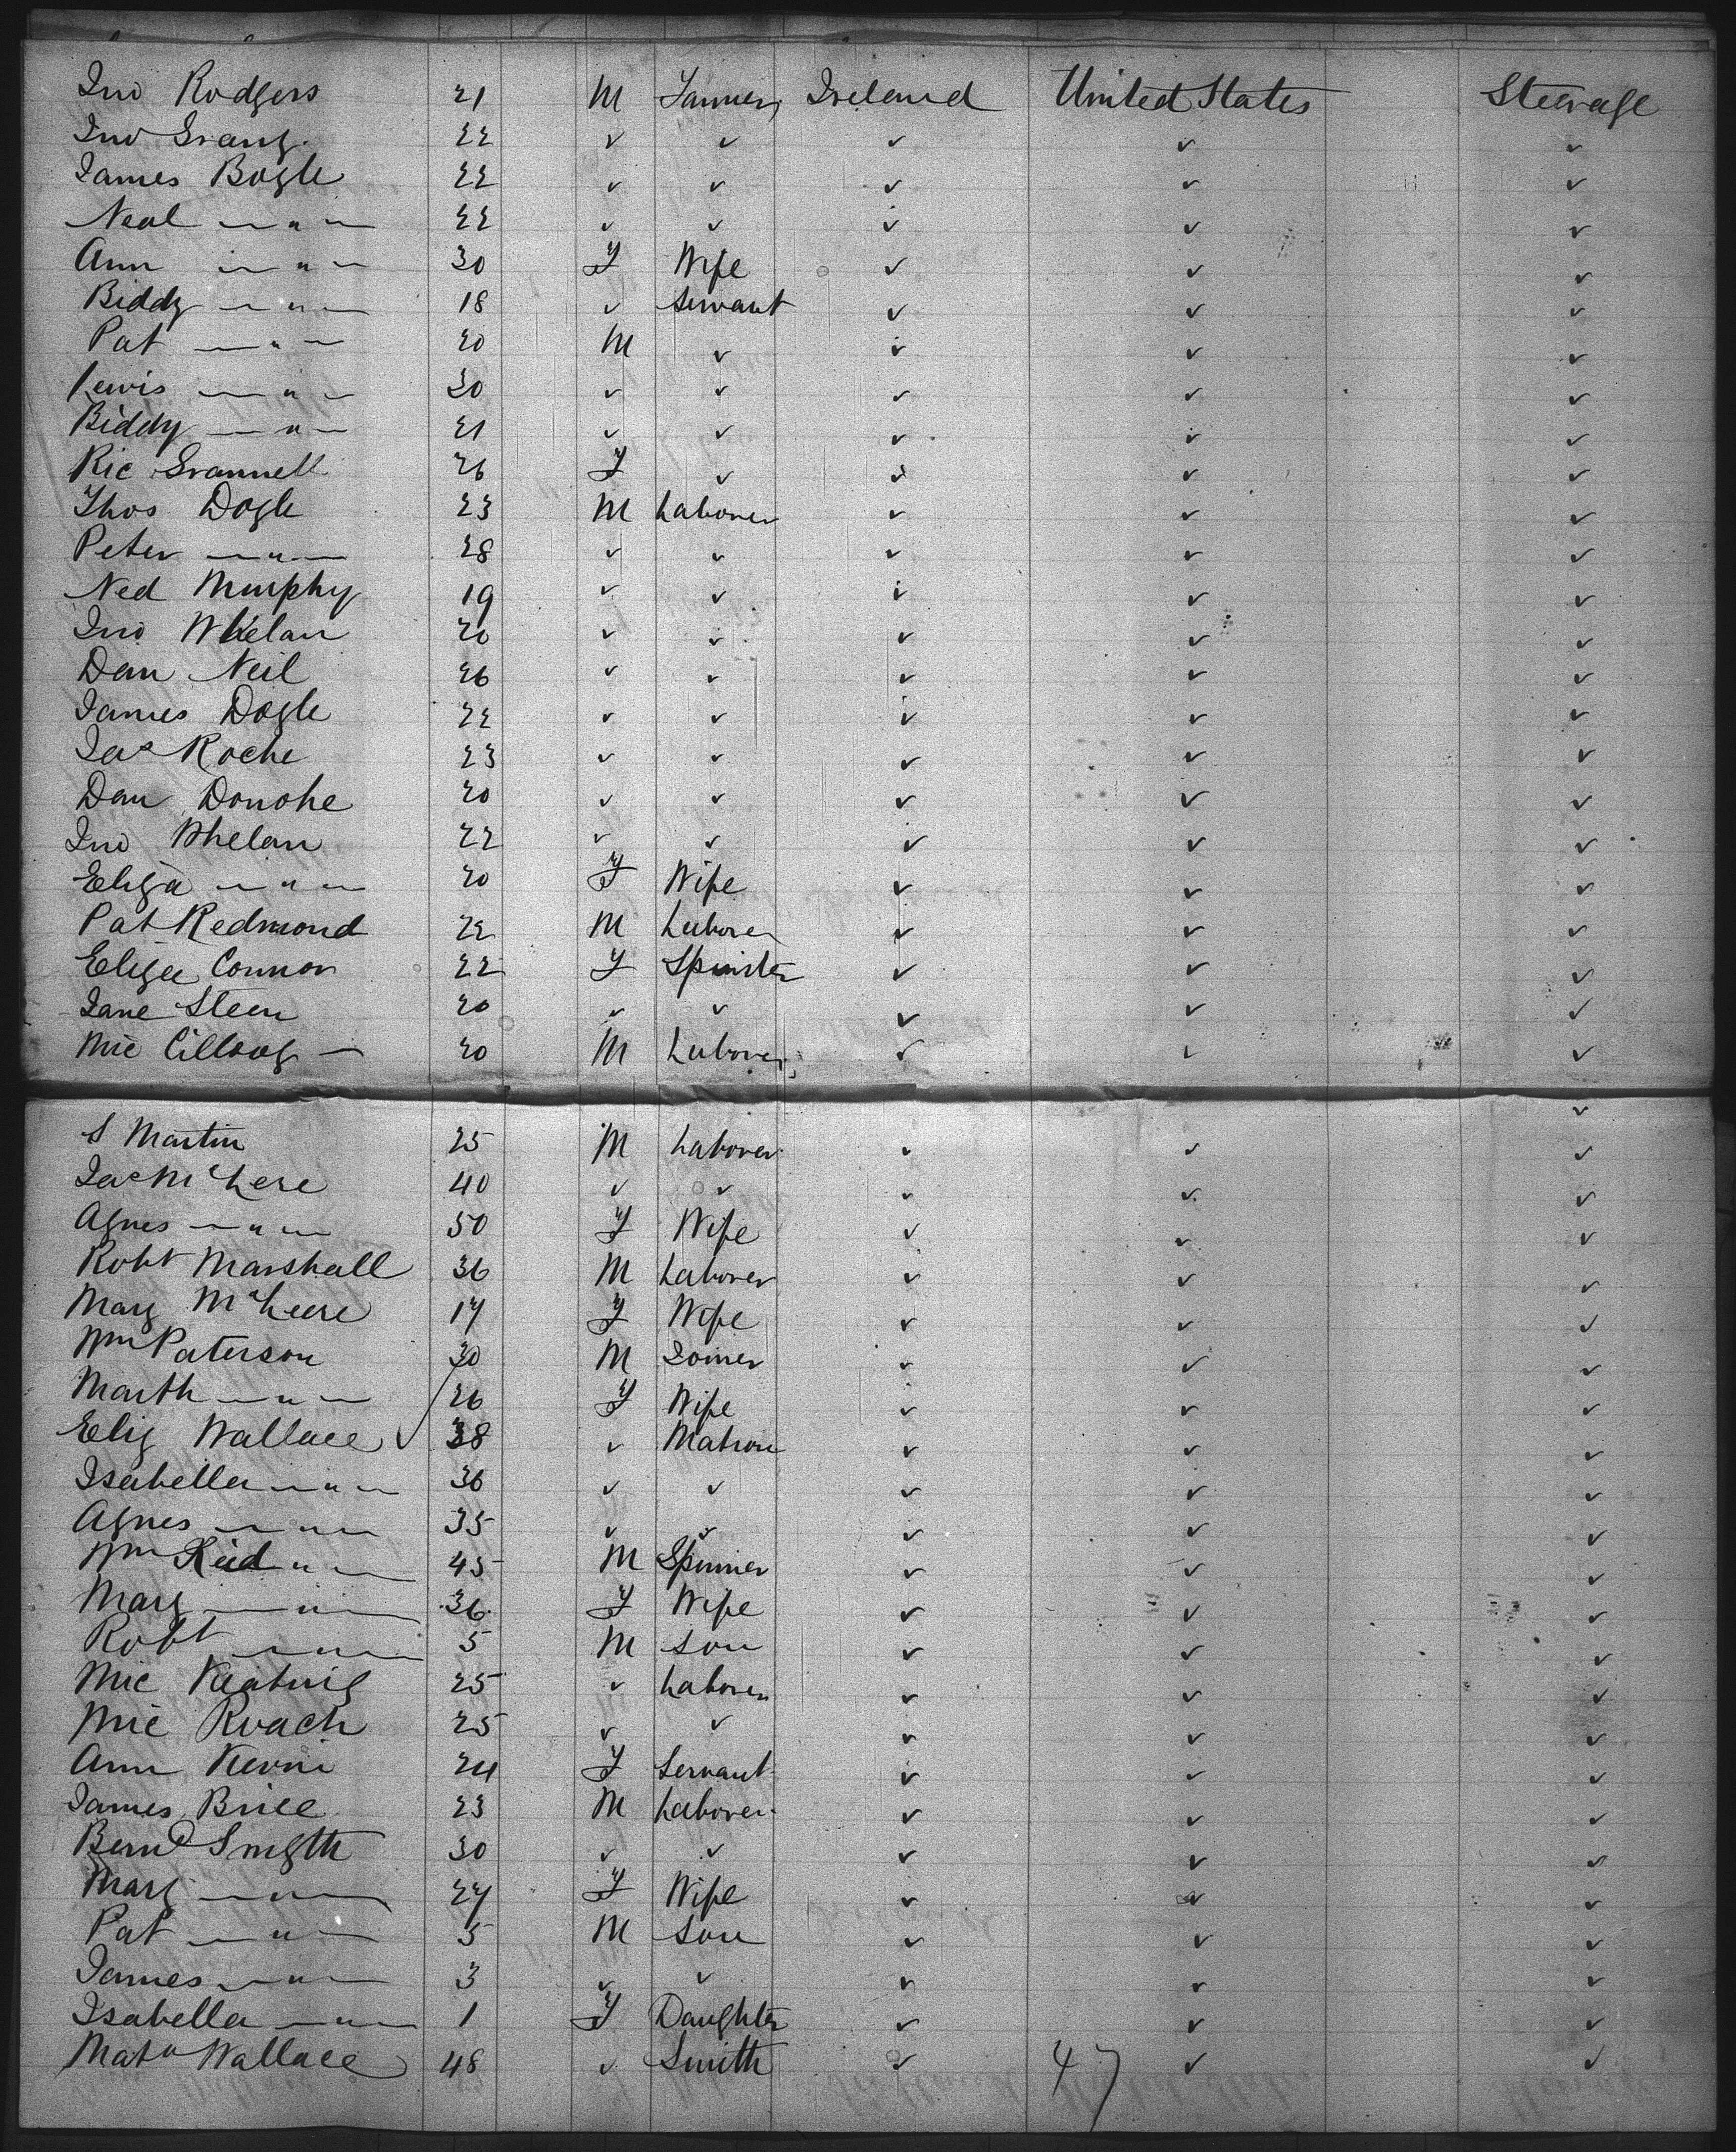 Jno Rodgers 21 M Farmer Ireland United States Steerage
Jno Grang. 22 ✓ ✓ ✓ ✓ ✓
James Bogle 22 ✓ ✓ ✓ ✓ ✓
Neal — " — 22 ✓ ✓ ✓ ✓ ✓
Ann — " — 30 F Wife ✓ ✓ ✓
Biddy — " — 18 ✓ Servant ✓ ✓ ✓
Pat — " — 20 M ✓ ✓ ✓ ✓
Lewis — " — 30 ✓ ✓ ✓ ✓ ✓
Biddy — " — 21 ✓ ✓ ✓ ✓ ✓
Ric Grannell 26 F ✓ ✓ ✓ ✓
Thos Dogle 23 M Laborer ✓ ✓ ✓
Peter — " — 28 ✓ ✓ ✓ ✓ ✓
Ned Murphy 19 ✓ ✓ ✓ ✓ ✓
Jno Whelan 20 ✓ ✓ ✓ ✓ ✓
Dan Neil 26 ✓ ✓ ✓ ✓ ✓
James Dogle 22 ✓ ✓ ✓ ✓ ✓
Jas Roche 23 ✓ ✓ ✓ ✓ ✓
Dan Donohe 20 ✓ ✓ ✓ ✓ ✓
Jno Whelan 22 ✓ ✓ ✓ ✓ ✓
Eliza — " — 20 F Wife ✓ ✓ ✓
Pat Redmond 22 M Laborer ✓ ✓ ✓
Eliza Connor 22 F Spinster ✓ ✓ ✓
Jane Steen 20 ✓ ✓ ✓ ✓ ✓
Mic — 20 M Laborer ✓ ✓ ✓
✓
S Martin 25 M Laborer ✓ ✓ ✓
Jas McLere 40 ✓ ✓ ✓ ✓ ✓
Agnes — " — 50 F Wife ✓ ✓ ✓
Robt Marshall 36 M Laborer ✓ ✓ ✓
Mary McLeere 17 F Wife ✓ ✓ ✓
Wm Paterson 30 M Joiner ✓ ✓ ✓
Marth — " — 26 F Wife ✓ ✓ ✓
Eliz Wallace ✓ 38 ✓ Matron ✓ ✓ ✓
Isabella — " — 36 ✓ ✓ ✓ ✓ ✓
Agnes — " — 35 ✓ ✓ ✓ ✓ ✓
Wm Reid " — 45 M Spinner ✓ ✓ ✓
Mary — " — 36 F Wife ✓ ✓ ✓
Robt — " — 5 M Son ✓ ✓ ✓
Mic Keating 25 ✓ Laborer ✓ ✓ ✓
Mic Roach 25 ✓ ✓ ✓ ✓ ✓
Ann Kerni 24 F Servant ✓ ✓ ✓
James Brice 23 M Laborer ✓ ✓ ✓
Bernd Smyth 30 ✓ ✓ ✓ ✓ ✓
Mary — " — 27 F Wife ✓ ✓ ✓
Pat — " — 5 M Son ✓ ✓ ✓
James — " — 3 ✓ ✓ ✓ ✓ ✓
Isabella — " — 1 F Daughter ✓ ✓ ✓
Matw Wallace 48 ✓ Smith ✓ 47 ✓ ✓